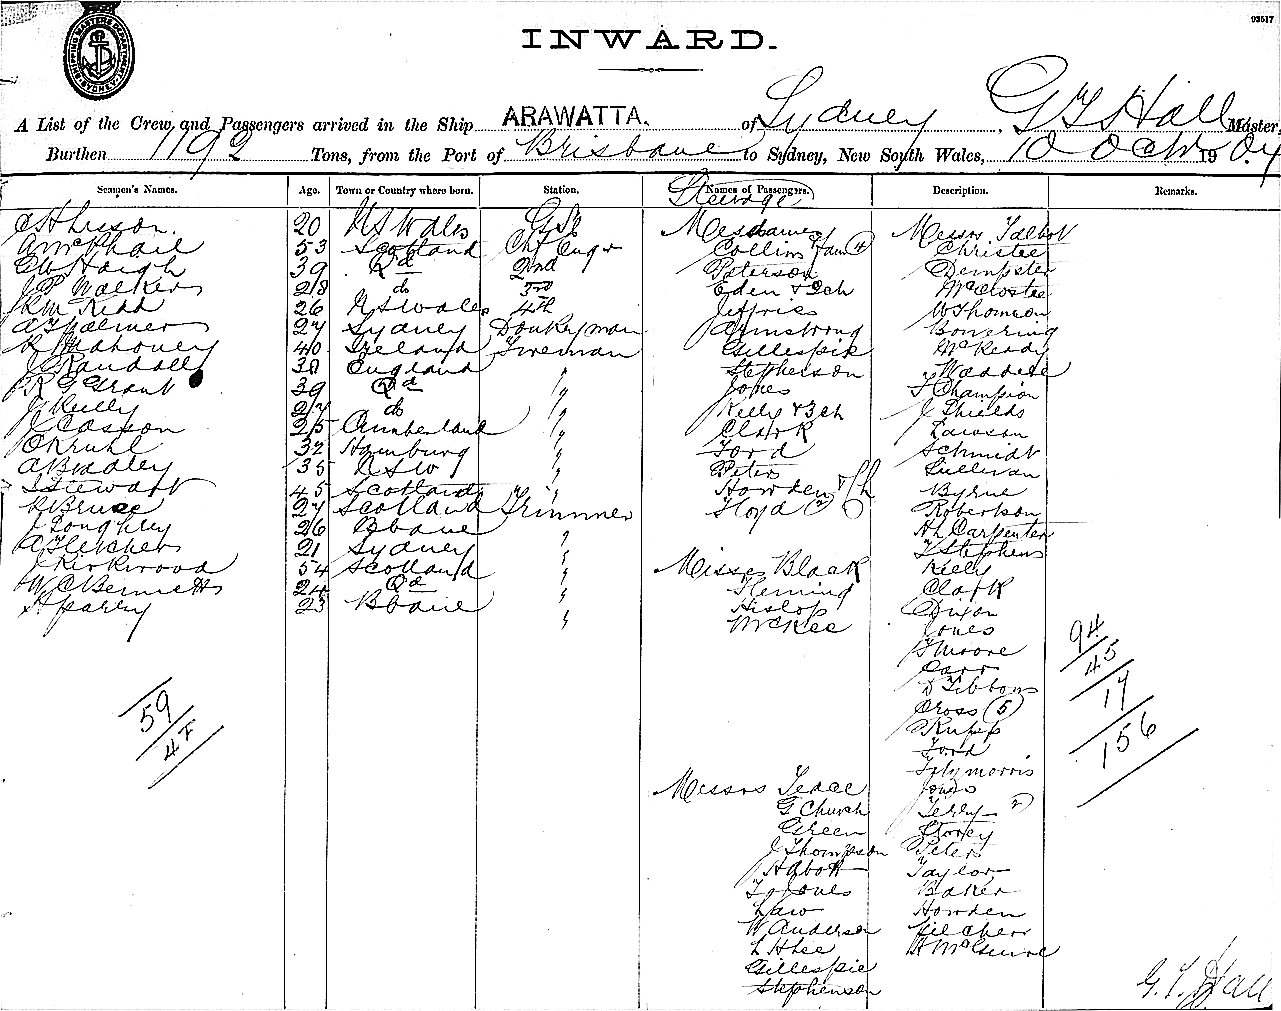 93517
SHIPPING MASTER'S DEPARTMENT SYDNEY
INWARD.
A List of the Crew and Passengers arrived in the Ship ARAWATTA. of Sydney G T Hall Master,
Burthen 1192 Tons, from the Port of Brisbane to Sydney, New South Wales, 10 Octr 1904
Seamen's Names. Age. Town or Country where born. Station. Names of Passengers. Description. Remarks.
Steerage
20 N S Wales Messrs Talbot
A McPhail 53 Scotland Chf Engr Collins Christee
Haigh 39 2nd Peterson Dempster
J P Walker 28 do 3rd Eden & 2ch
Kidd 26 N S Wales 4th Jeffries W Thomson
Palmer 27 Sydney Donkeyman Armstrong Bowering
R Mahoney 40 Ireland Fireman Gillespie McReady
J Randall 38 England " Stephenson
R G Grant 39 " Jones T Champion
J Kelly 27 do " Kelly & 3ch J Shields
J Casson 25 Cumberland " Clark Lawson
O Kruhl 32 Hamburg " Ford Schmidt
A Bradley 35 N S W " Peter Sullivan
J Stewart 45 Scotland " Howden & ch Byrne
R Bruce 27 Scotland Trimmer Floyd Robertson
J Loughley 26 Bbane " H L Carpenter
A Fletcher 21 Sydney " T Stephens
J Kirkwood 54 Scotland " Misses Black Kelly
W C Bennetts 24 " Fleming Clark
23 Bbane " Hislop Dixon
McKee Jones
T Moore
Carr
D Gibbons
Cross (5)
Rupp
Ford
Fitzmorris
Messrs Jones
G Church Terry 2
Green Storey
J Thompson Peter
Taylor
T Jones Baker
Law Howden
W Anderson
L H Lee H McGuire
Gillespie
Stephenson
59
47
94
45
17
156
G. T. Hall